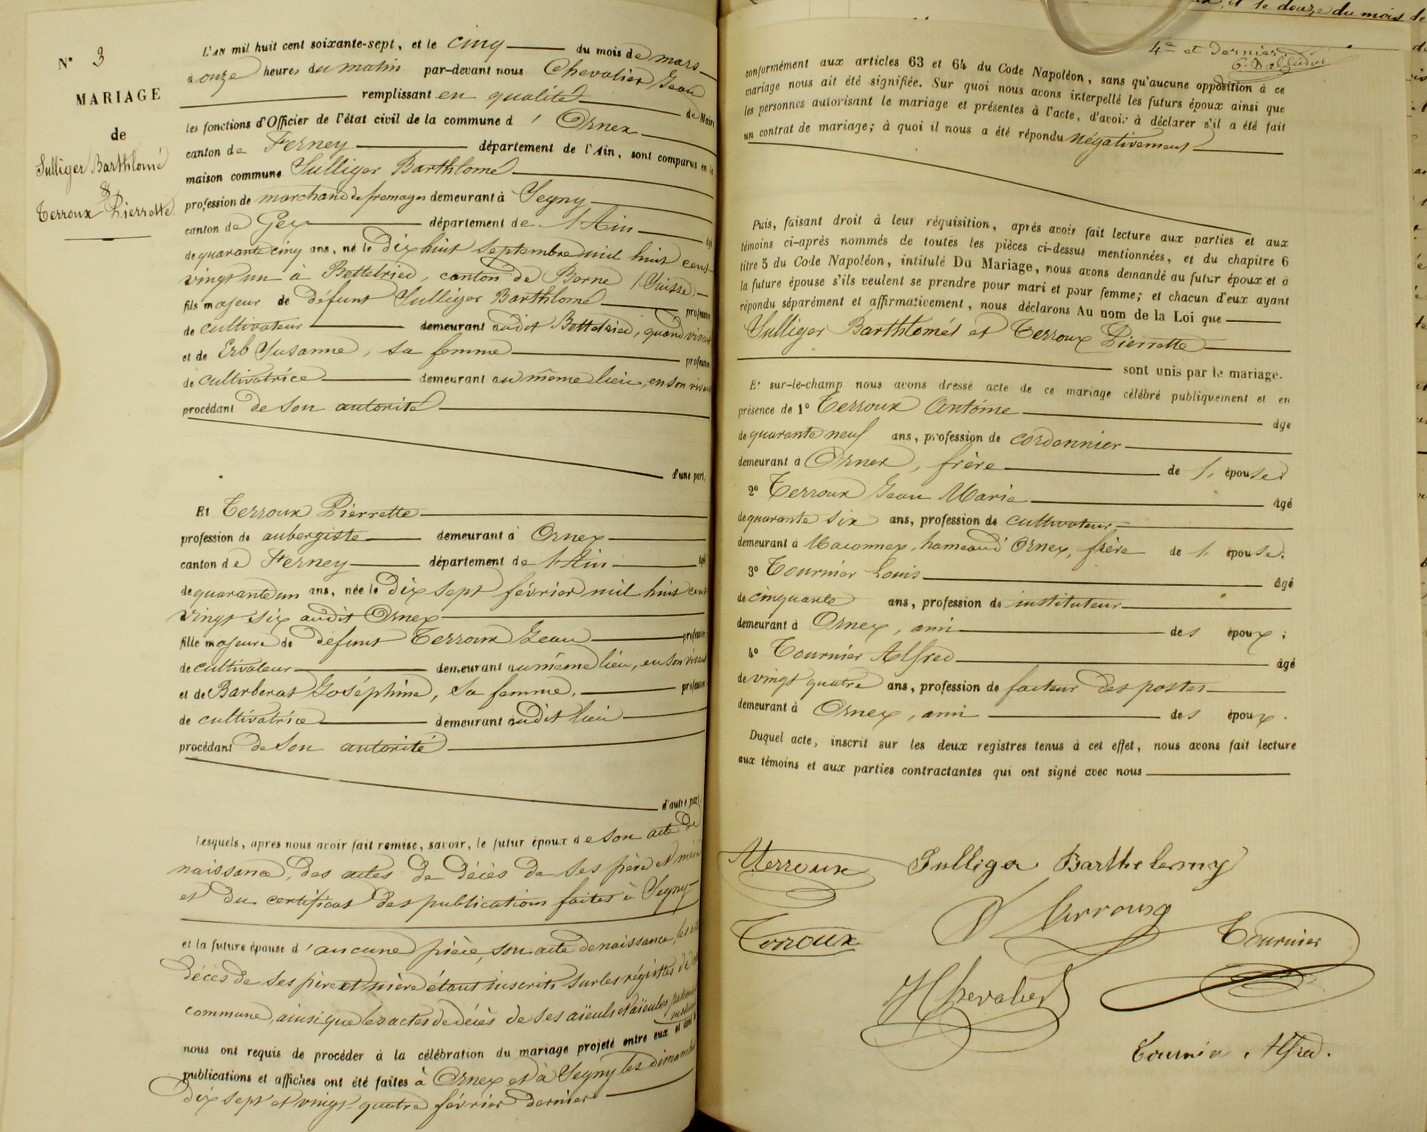 N° 3
MARIAGE
de
Sulliger Barthlomé
&
Terroux Pierrette
L'an mil huit cent soixante-sept, et le cinq du mois de mars
à onze heures du matin par-devant nous Chevalier, Jean
remplissant en qualité de Maire
les fonctions d'Officier de l'état civil de la commune d' Ornex
canton de Ferney département de l'Ain, sont comparus en la
maison commune Sulliger Barthlomé
profession de marchand de fromages demeurant à Segny
canton de Gex département de l'Ain âgé
de quarante cinq ans, né le Dix huit Septembre mil huit cent
vingt un à Bettelried, canton de Berne (Suisse)
fils majeur de défunt Sulliger Barthlomé profession
de cultivateur demeurant audit Bettelried, quand vivait
et de Erb Susanne, sa femme profession
de cultivatrice demeurant au même lieu, en son vivant
procédant de son autorité
d'une part,
Et Terroux Pierrette
profession de aubergiste demeurant à Ornex
canton de Ferney département de l'Ain âgé
de quarante un ans, née le Dix sept février mil huit cent
vingt six audit Ornex
fille majeure de défunt Terroux Jean profession
de cultivateur demeurant au même lieu, en son vivant
et de Barberat Joséphine, sa femme, profession
de cultivatrice demeurant audit lieu
procédant de son autorité
d'autre part
Lesquels, après nous avoir fait remise, savoir, le futur époux de son acte de
naissance, des actes de décès de ses père et mère
et du certificat des publications faites à Segny
et la future épouse d'aucune pièce, son acte de naissance, les actes
décès de ses père et mère étant inscrits sur les registres de cette
commune, ainsi que les actes de décès de ses aïeuls et aïeules
nous ont requis de procéder à la célébration du mariage projeté entre eux et dont les
publications et affiches ont été faites à Ornex et à Segny les dimanches
dix sept et vingt-quatre février dernier
4e et dernier
conformément aux articles 63 et 64 du Code Napoléon, sans qu'aucune opposition à ce
mariage nous ait été signifiée. Sur quoi nous avons interpellé les futurs époux ainsi que
les personnes autorisant le mariage et présentes à l'acte, d'avoir à déclarer s'il a été fait
un contrat de mariage; à quoi il nous a été répondu négativement
Puis, faisant droit à leur réquisition, après avoir fait lecture aux parties et aux
témoins ci-après nommés de toutes les pièces ci-dessus mentionnées, et du chapitre 6
titre 5 du Code Napoléon, intitulé Du Mariage, nous avons demandé au futur époux et à
la future épouse s'ils veulent se prendre pour mari et pour femme; et chacun d'eux ayant
répondu séparément et affirmativement, nous déclarons Au nom de la Loi que
Sulliger Barthlomé et Terroux Pierrette
sont unis par le mariage.
Et sur-le-champ nous avons dressé acte de ce mariage célébré publiquement et en
présence de 1° Terroux Antoine âgé
de quarante neuf ans, profession de cordonnier
demeurant à Ornex, frère de l' épouse
2° Terroux Jean Marie âgé
de quarante six ans, profession de cultivateur,
demeurant à Maconnex, hameau d'Ornex, frère de l' épouse.
3° Tournier Louis âgé
de cinquante ans, profession de instituteur
demeurant à Ornex, ami des époux;
4° Tournier Alfred âgé
de vingt quatre ans, profession de facteur des postes
demeurant à Ornex, ami des époux.
Duquel acte, inscrit sur les deux registres tenus à cet effet, nous avons fait lecture
aux témoins et aux parties contractantes qui ont signé avec nous
Terroux Sulliger Barthelemy
Terroux
Terroux Tournier
Chevalier
Tournier Alfred.